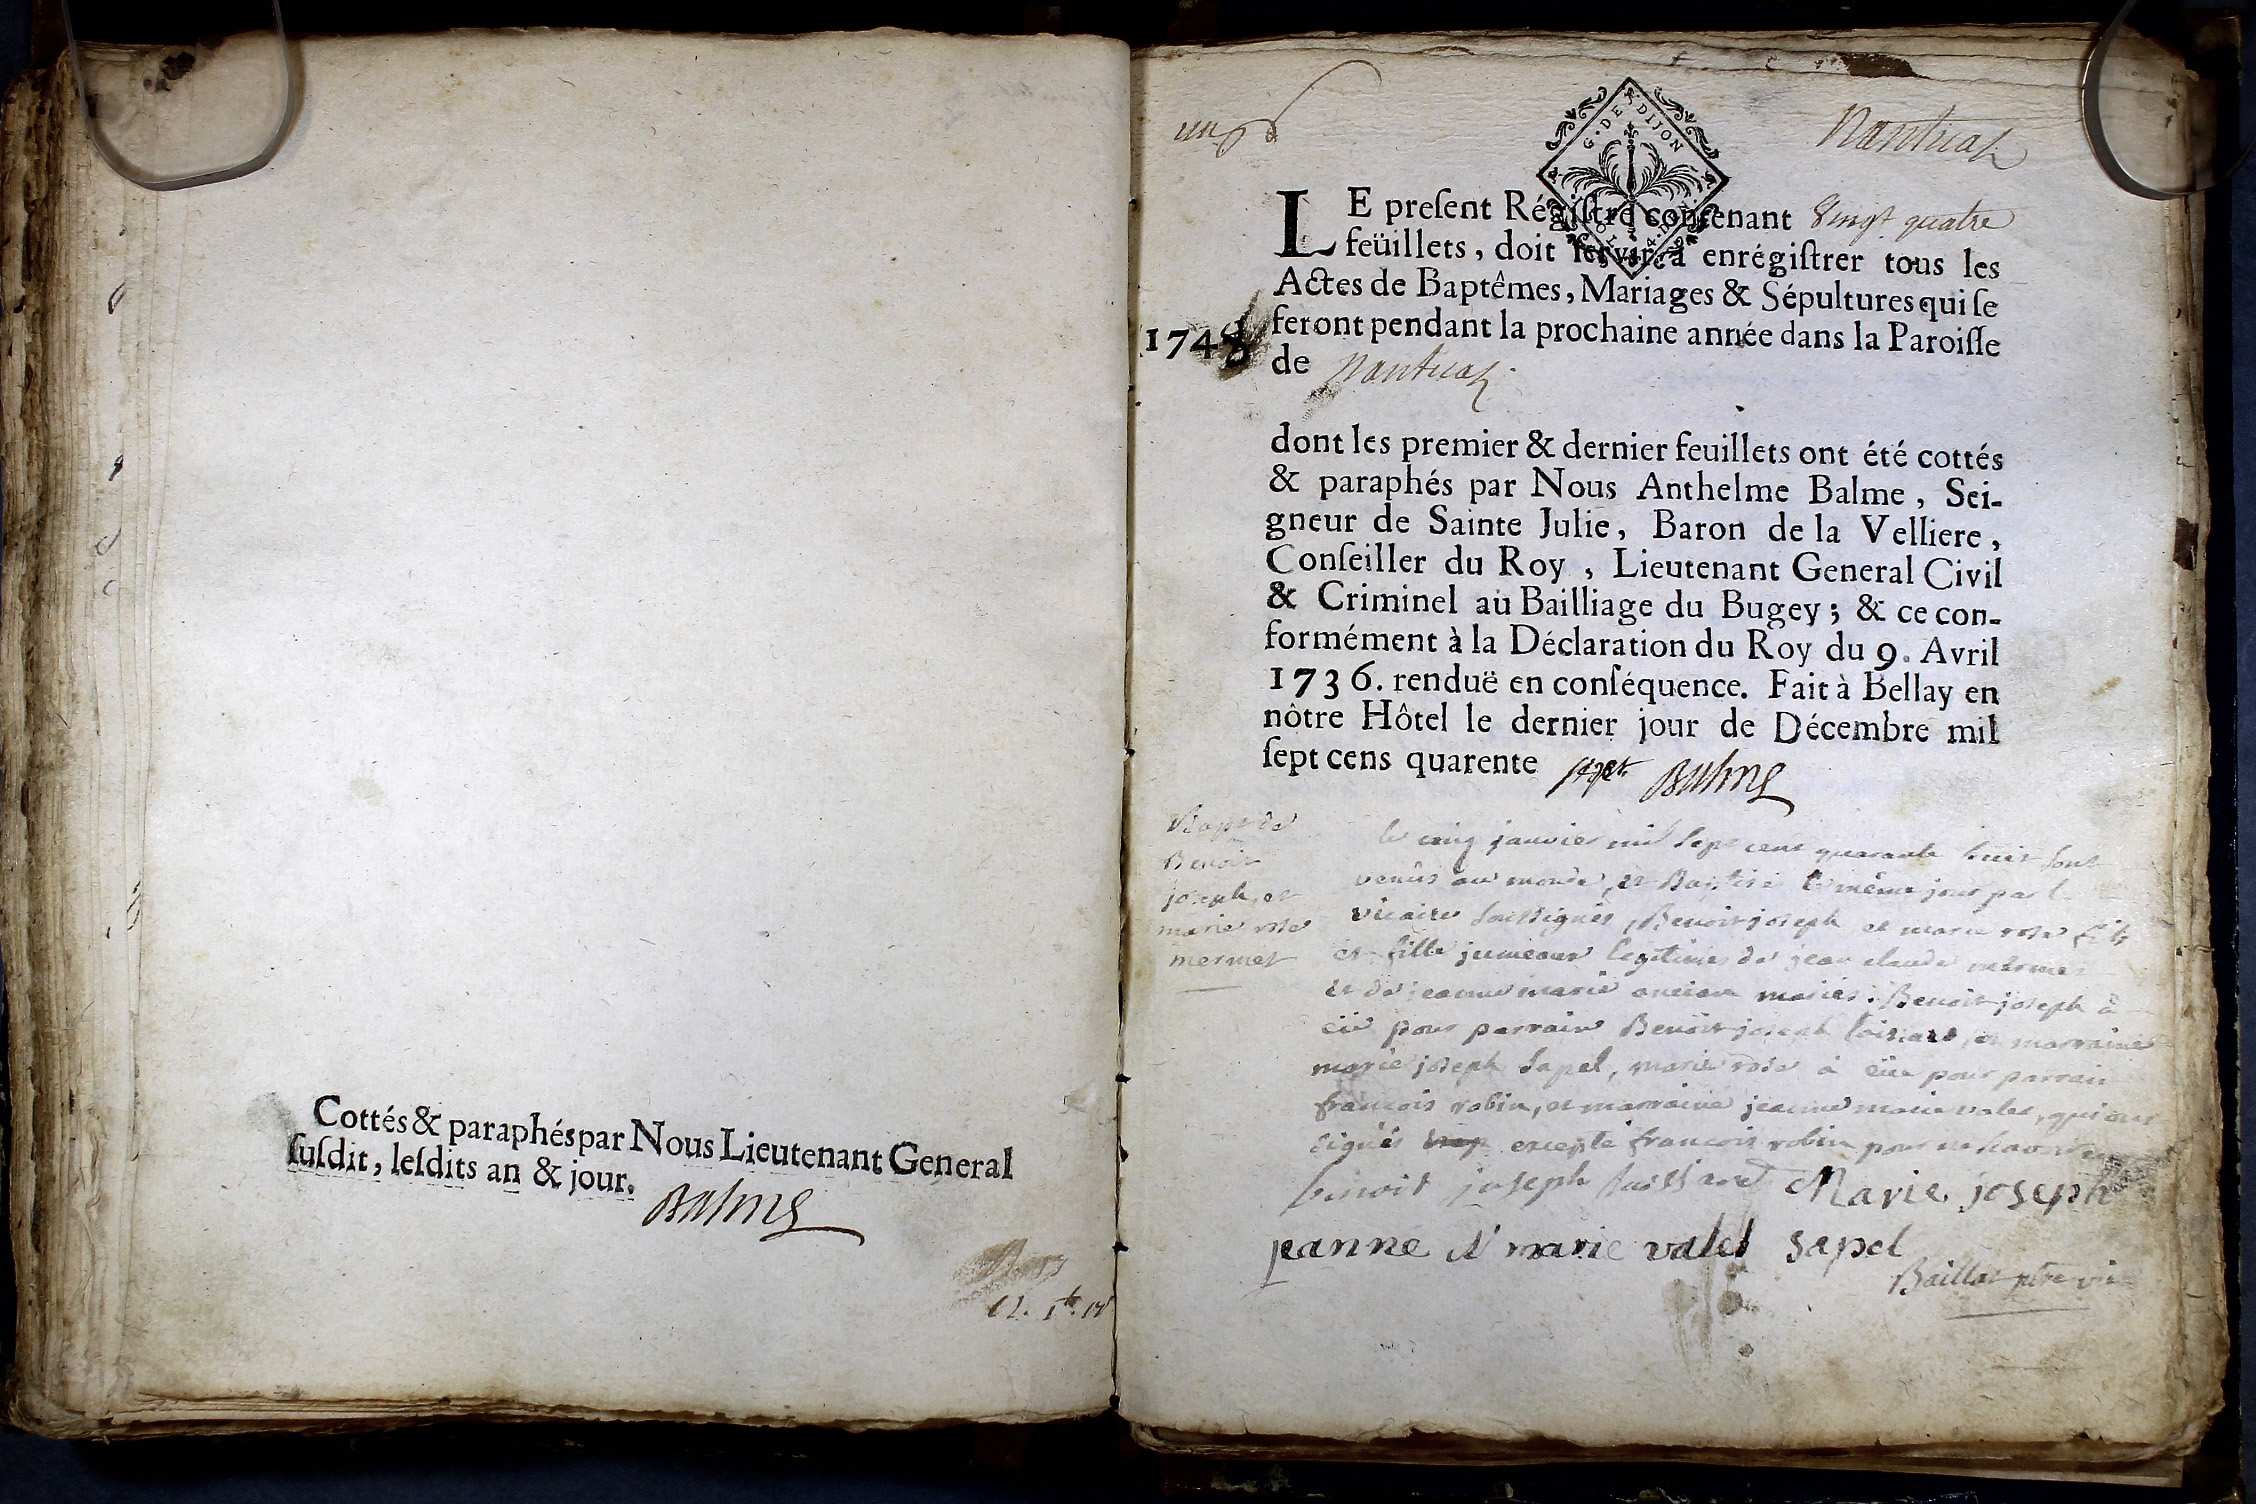 Cottés & paraphés par Nous Lieutenant General
ſuſdit, leſdits an & jour.
Balme
un
G. DE DIJON
Nantuas
LE preſent Régiſtre contenant Vingt quatre
feüillets, doit ſervir à enrégiſtrer tous les
Actes de Baptêmes, Mariages & Sépultures qui ſe
feront pendant la prochaine année dans la Paroiſſe
1748
de Nantuas.
dont les premier & dernier feuillets ont été cottés
& paraphés par Nous Anthelme Balme, Sei-
gneur de Sainte Julie, Baron de la Velliere,
Conſeiller du Roy, Lieutenant General Civil
& Criminel au Bailliage du Bugey; & ce con-
formément à la Déclaration du Roy du 9. Avril
1736. renduë en conſéquence. Fait à Bellay en
nôtre Hôtel le dernier jour de Décembre mil
ſept cens quarente sept Balme
Bapt de
Benoit
joseph, et
marie rose
mermet
le cinq janvier mil sept cent quarante huit sont
venûs au monde, et Baptisé le même jour par l
vicaire soussigné, Benoit joseph et marie rose fils
et fille jumeaux legitimes de jean claude mermet
et de jeanne marie mariés. Benoit joseph à
eü pour parrain Benoit joseph et marraine
marie joseph sapel, marie rose à eüe pour parrain
francois robin, et marraine jeanne marie valet, qui ont
signés excepté francois robin pour ne savoir
benoit joseph Marie joseph
jeanne marie valet sapel
Baillat ptre vic